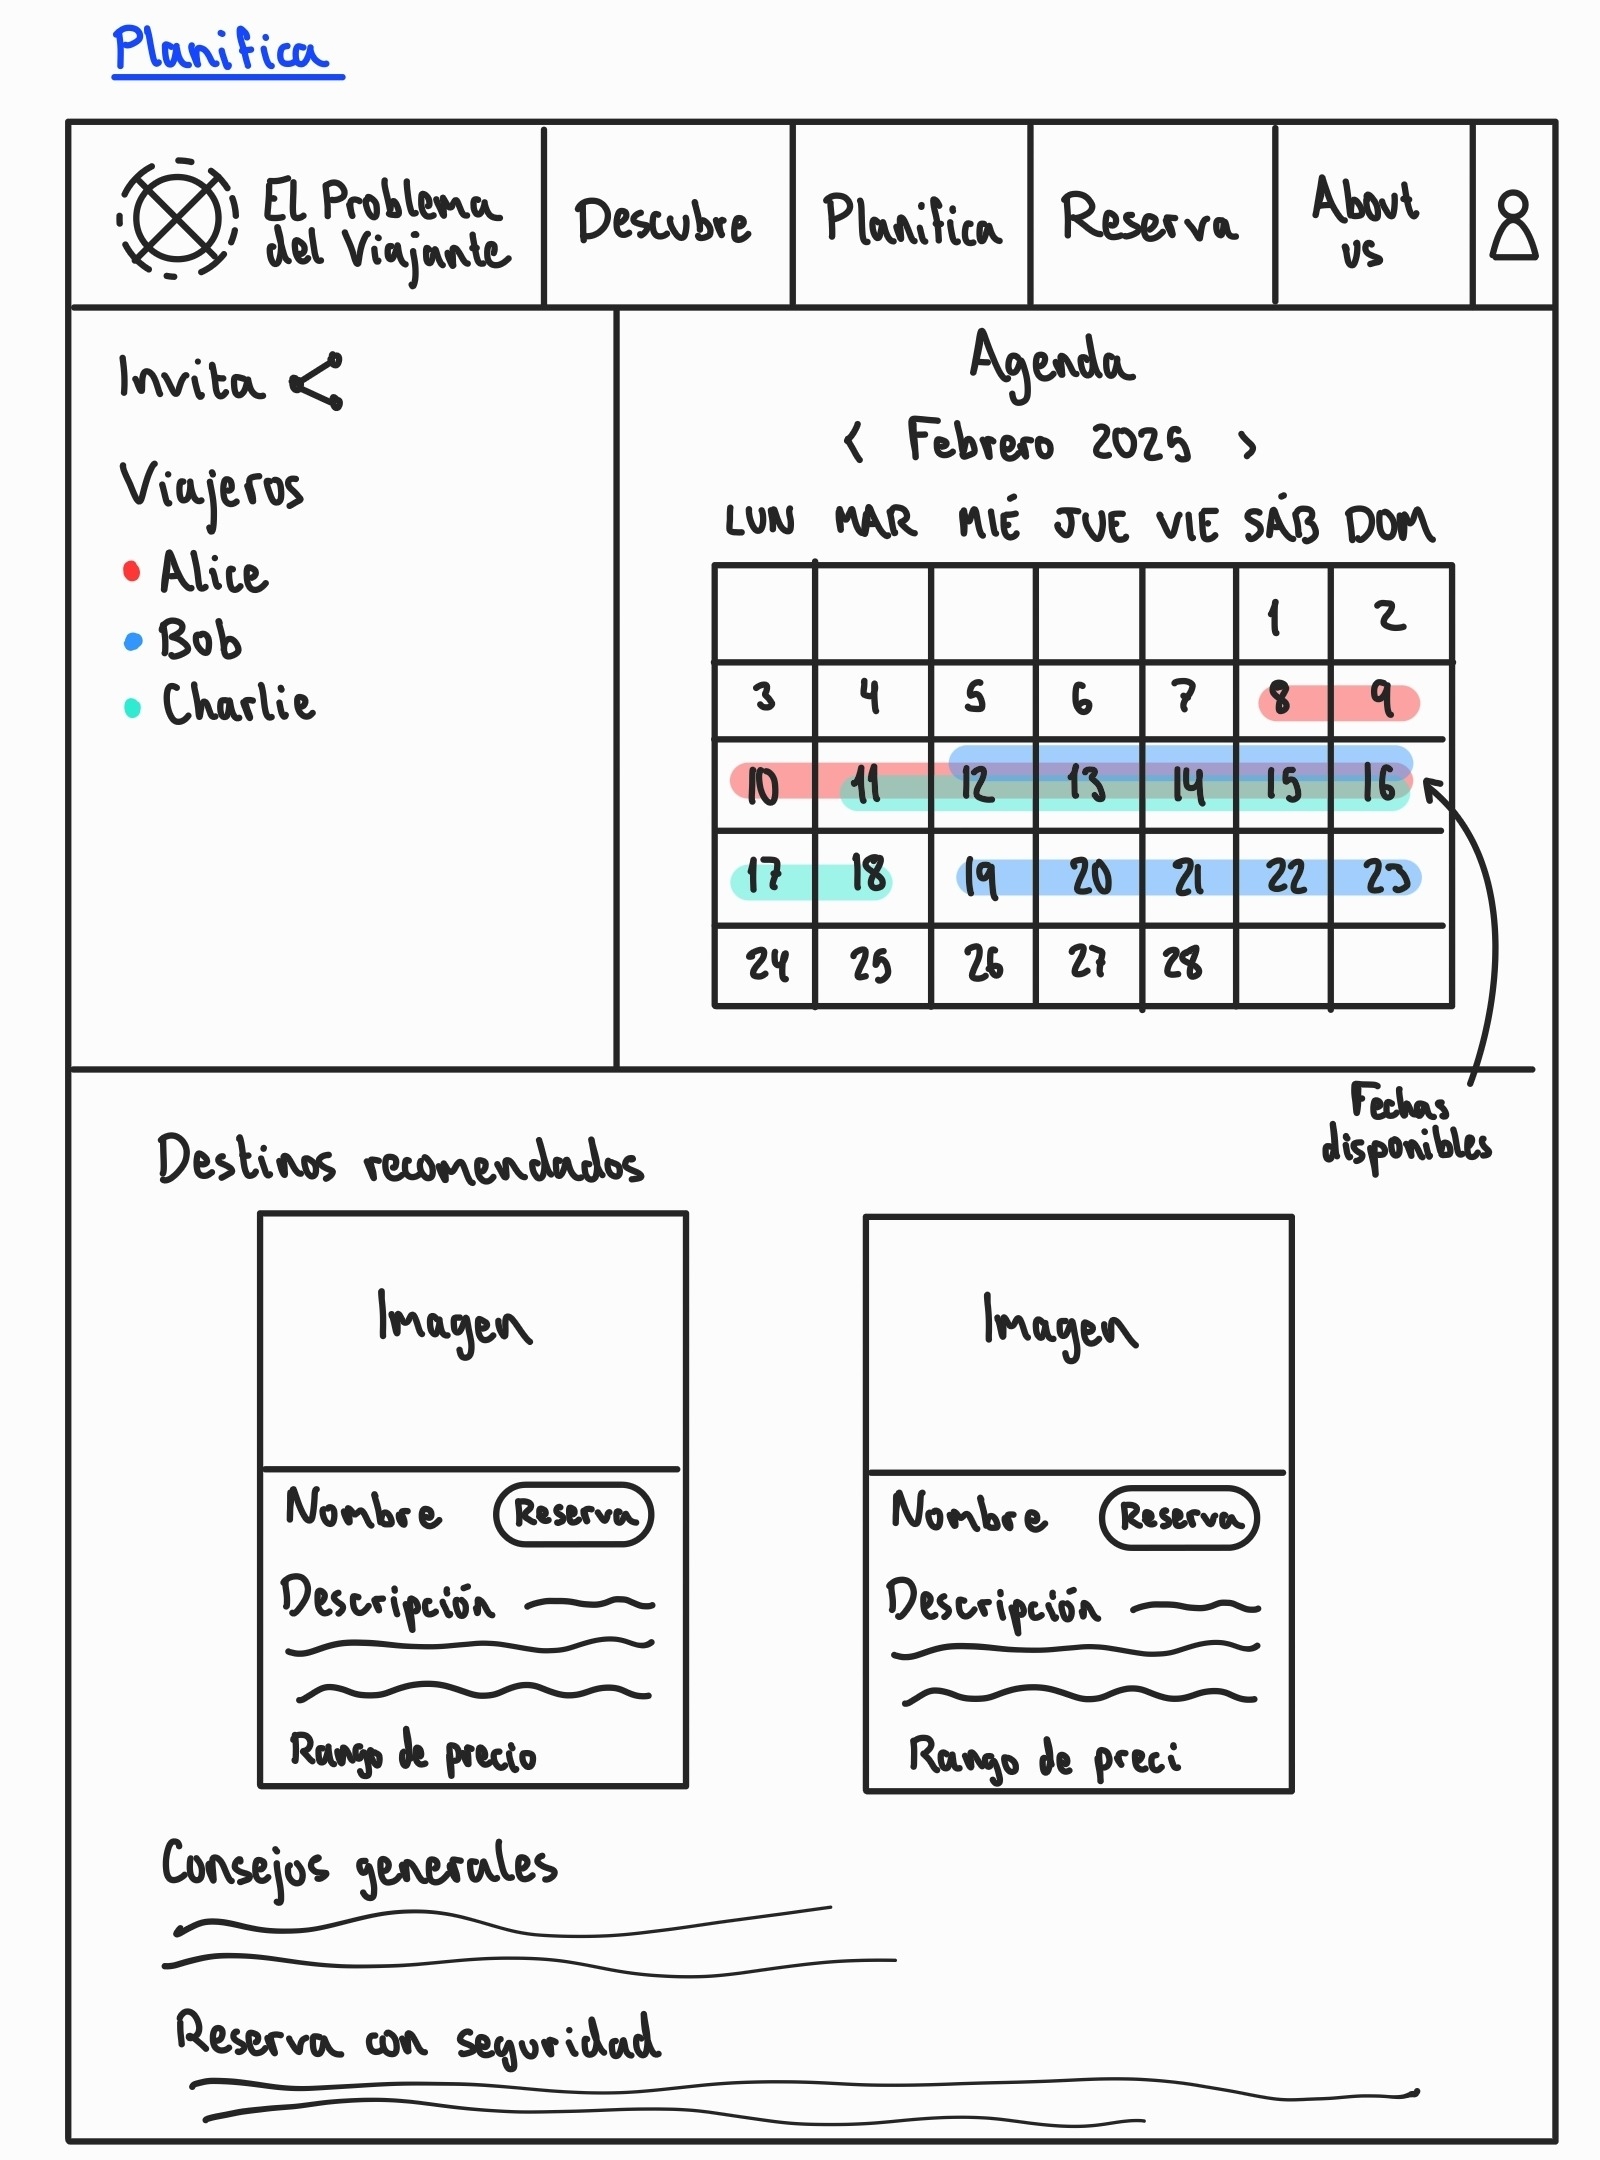 Planifica
El Problema
del Viajante
Descubre
Planifica
Reserva
About
us
Invita
Viajeros
Alice
Bob
Charlie
Agenda
< Febrero 2025 >
LUN MAR MIÉ JUE VIE SÁB DOM
1 2
3 4 5 6 7 8 9
10 11 12 13 14 15 16
17 18 19 20 21 22 23
24 25 26 27 28
Fechas
disponibles
Destinos recomendados
Imagen
Nombre Reserva
Descripción
Rango de precio
Imagen
Nombre Reserva
Descripción
Rango de preci
Consejos generales
Reserva con seguridad